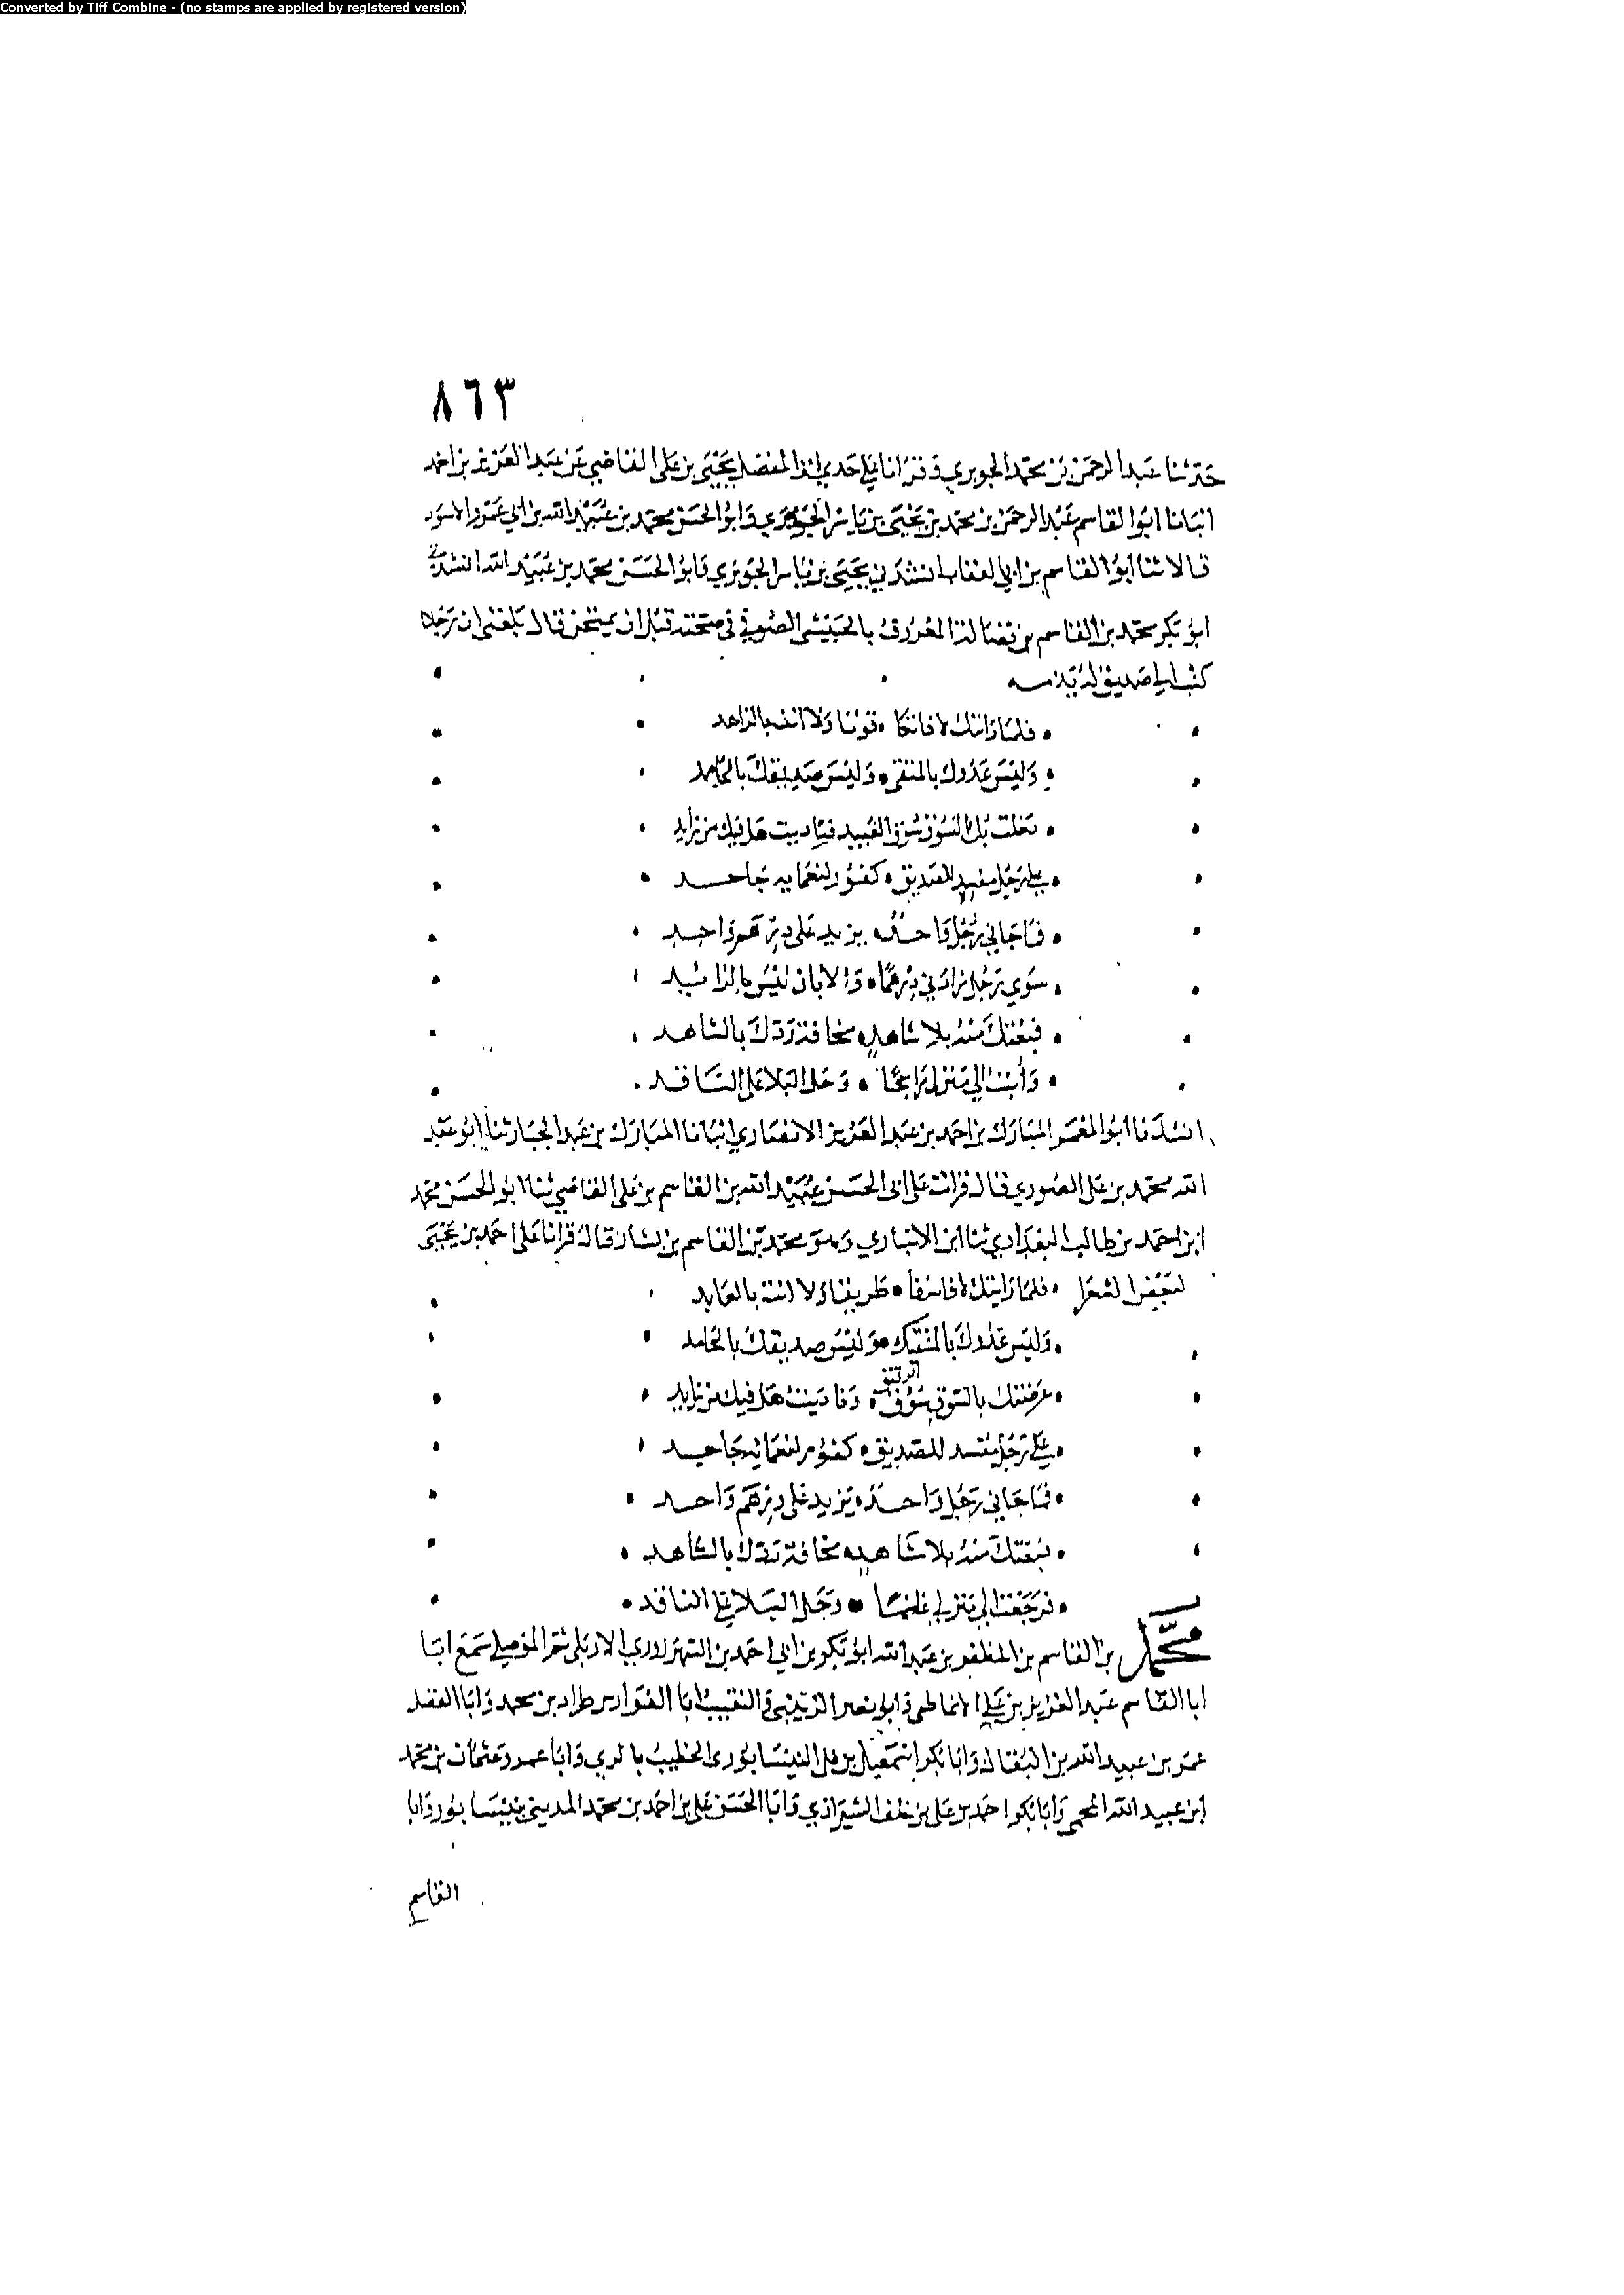 Converted by Tiff Combine - (no stamps are applied by registered version)
٨٦٣
حدثنا عبد الرحمن بن محمد الجوبري وقرانا على جدي ابي المفضل يحيى بن على القاضي عن عبد العزيز بن احمد
انبانا ابو القاسم عبد الرحمن بن محمد بن يحيى بن ياسر الجوبري وابو الحسن محمد بن عبيد الله بن ابي عمرو الاسود
قالا ثنا ابو القاسم بن ابي العقاب انشدني يحيى بن ياسر الجوبري وابو الحسن محمد بن عبيد الله انشدني
ابو بكر محمد بن القاسم بن المعروف بالحبيشى الصوفي في قبل ان يمتحن قال بلغنى ان رجلا
كتب الى صديق له
فلما رايتك لا فاتكا • قويا ولا انت بالزاهد
وليس عدوك بالمتقى • وليس صديقك بالحامد
بك السوق سوق العبيد فناديت هل فيك من زايد
على رجل للصديق • كفور لنعمايه جاحد
فما جاني رجل واحد • يزيد على درهم واحد
سوي رجل زادني درهما • والا بان ليس بالراشد
فبعتك منه بلا شاهد • مخافة ردك بالشاهد
وأبت الى منزلى رابحا • وحل البلا على الناقد
انشدنا ابو المعمر المبارك بن احمد بن عبد العزيز الانصاري انبانا المبارك بن عبد الجبار ثنا ابو عبد
الله محمد بن على الصوري قال قرات على ابى الحسن عبيد الله بن القاسم بن على القاضي ثنا ابو الحسن محمد
ابن احمد بن طالب البغدادي ثنا ابن الانباري وهو محمد بن القاسم بن بشار قال قرانا على احمد بن يحيى
لبعض الشعرا • فلما رايتك لا فاسقا • ظريفا ولا انت بالعابد
وليس عدوك بالمتقى • وليس صديقك بالحامد
عرضتك بالسوق سوق الرقيق • وناديت هل فيك من زايد
على رجل مفسد للصديق • كفور لنعمايه جاحد
فما جاني رجل واحد • يزيد على درهم واحد
فبعتك منه بلا شاهد • مخافة ردك بالشاهد
فرجعت الى منزلى غانما • وحل البلا على الناقد
محمد بن القاسم بن المظفر بن عبد الله ابو بكر بن ابي احمد بن الشهرزوري الاربلى ثم الموصلى سمع ابا
ابا القاسم عبد العزيز بن على الانماطى وابو نصر الزينبى والنقيب ابا الفوارس طراد بن محمد وابا الفضل
عمر بن عبيد الله بن البقال وابا بكر اسمعيل بن على النيسابورى الخطيب بالري وابا عمرو عثمان بن محمد
ابن عبيد الله المحمى وابا بكر احمد بن على بن خلف الشيرازي وابا الحسن على بن احمد بن محمد المدينى بنيسابور وابا
القاسم